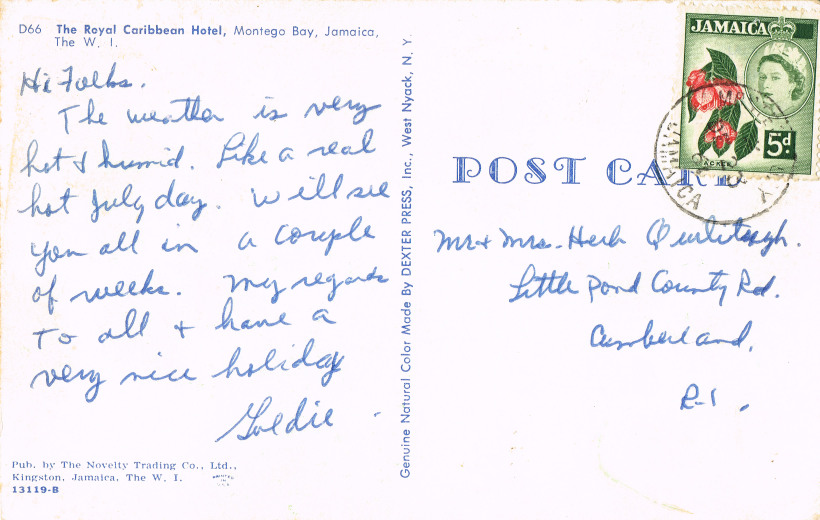 D66 The Royal Caribbean Hotel, Montego Bay, Jamaica,
The W. I.
Hi Folks.
The weather is very
hot & humid. Like a real
hot July day. Will see
you all in a couple
of weeks. My regards
to all & have a
very nice holiday
Goldie.
Pub. by The Novelty Trading Co., Ltd.,
Kingston, Jamaica, The W. I.
13119-B
Genuine Natural Color Made By DEXTER PRESS, Inc., West Nyack, N. Y.
JAMAICA
5d
ACKEE
JAMAICA
POST CARD
Mr & Mrs. Herb
Little Pond County Rd.
Cumberland,
R-I.